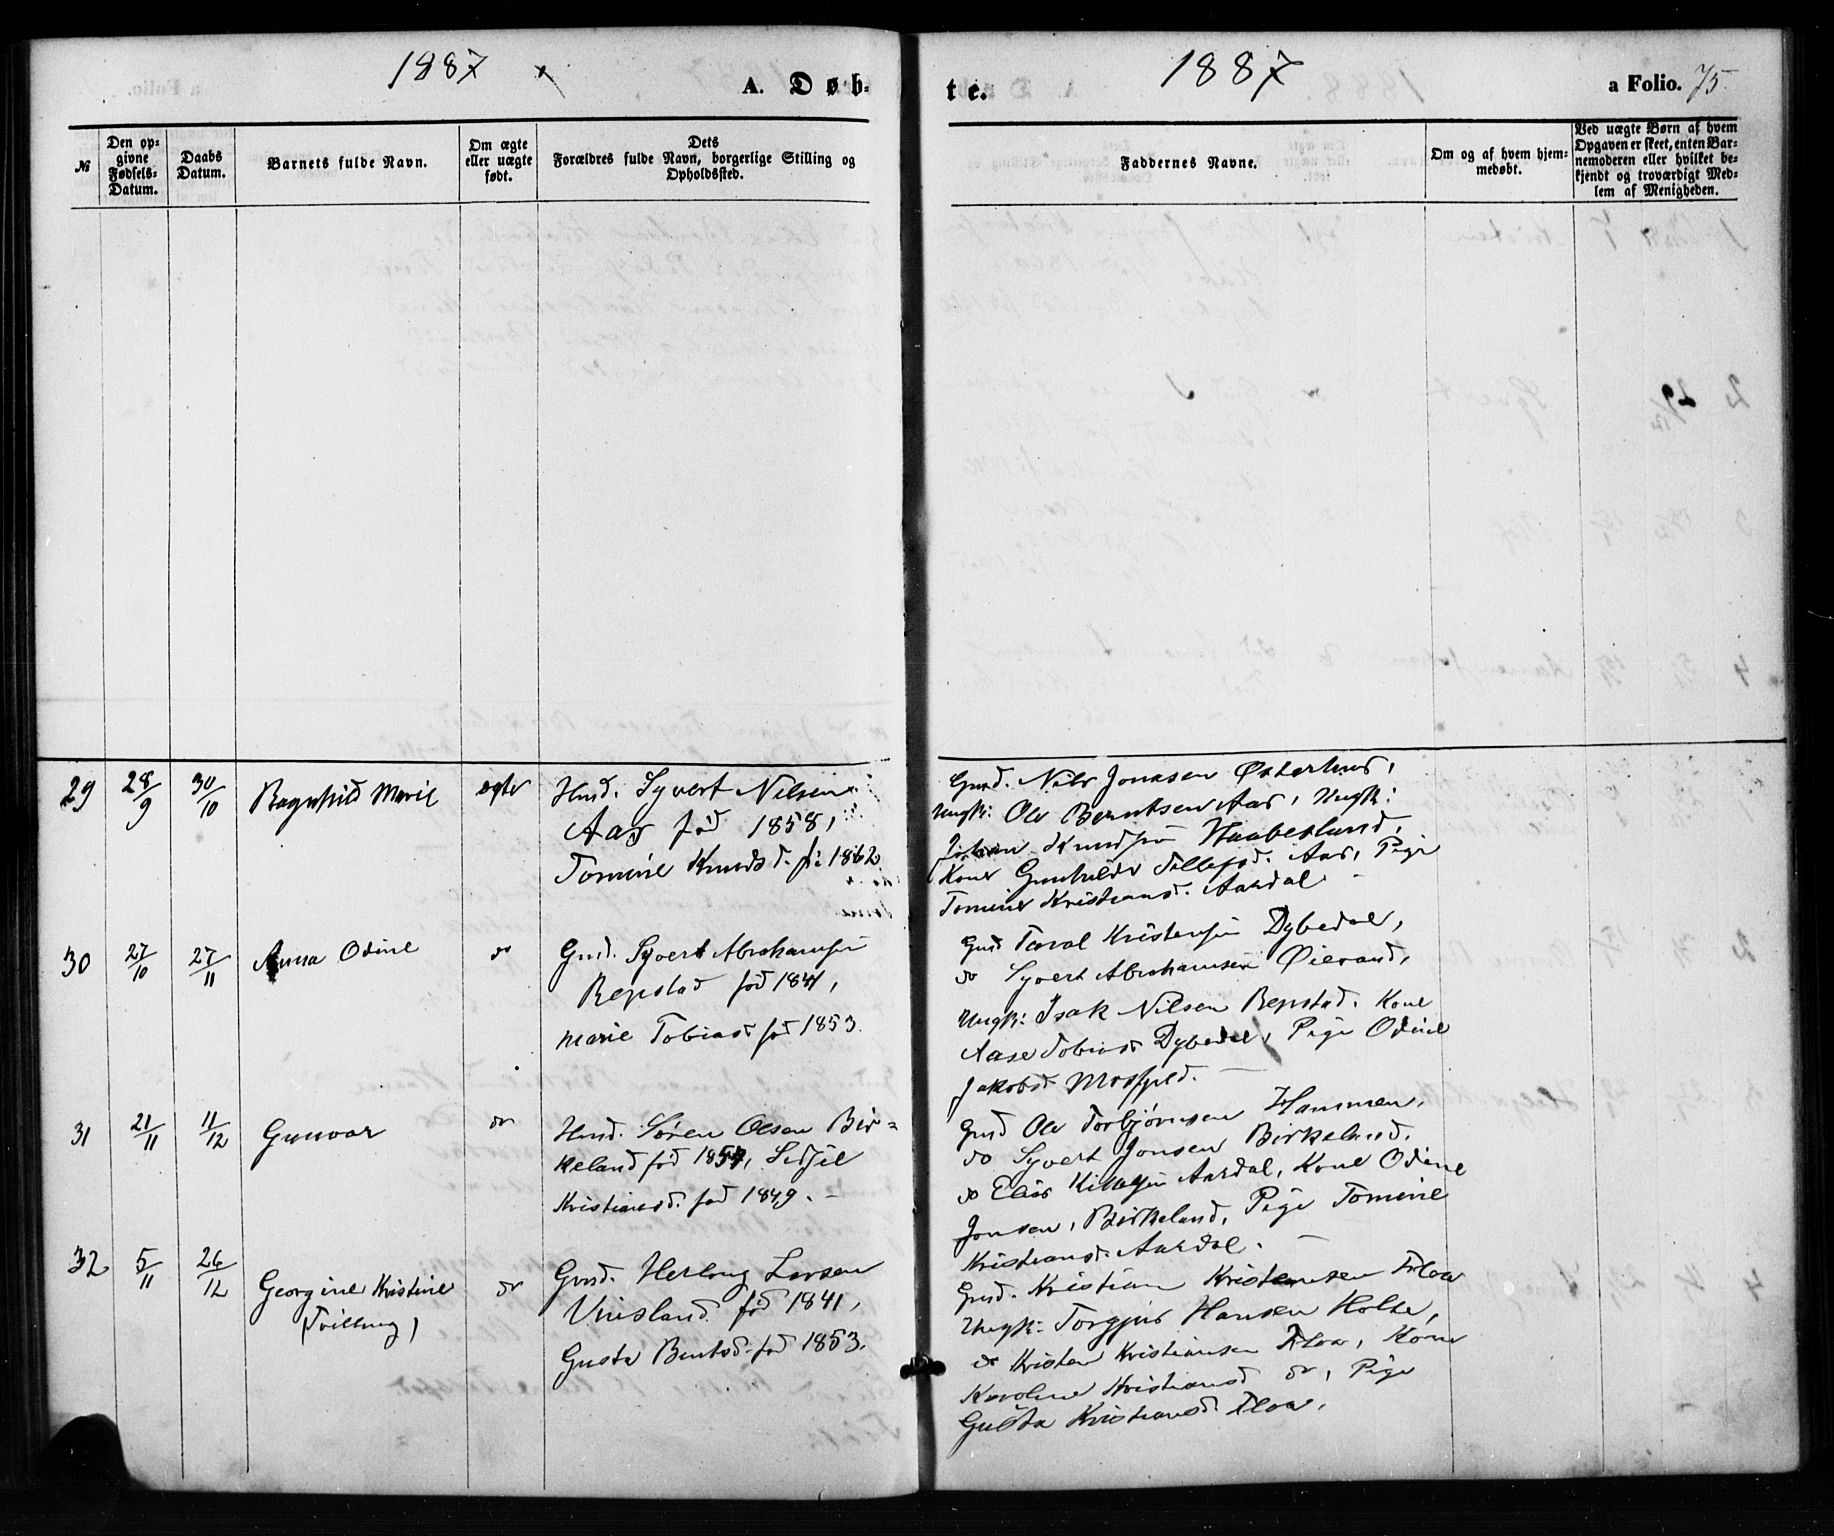 1887
A. Døb-
№
Den op-
givne
Fødsels-
Datum.
Daabs
Datum.
Barnets fulde Navn.
Om ægte
eller uægte
født.
Dets
Forældres fulde Navn, borgerlige Stilling og
Opholdssted.
29
28/9
30/10
Ragnhild Marie
ægte
Husd. Syvert Nilsen
Aas född 1858,
Tomine Knudsd. f. 1862
30
27/10
27/11
Anna Odine
do
Gmd. Syvert Abrahamsen
Repstad fød 1841,
Marie Tobiasd fød 1853.
31
21/11
11/12
Gunvor
do
Husd. Søren Olsen Bir=
keland fød 1857, Sidsel
Kristiansd. fød 1849. –
32
5/11
26/12
Georgine Kristine
(Tvilling)
do
Gmd. Herlong Larsen
Vinsland fød 1841,
Gusta Bentsd. fød 1853.
te.
1887
a Folio. 75.
Faddernes Navne.
Om og af hvem hjem-
medøbt.
Ved uægte Børn af hvem
Opgaven er skeet, enten Bar-
nemoderen eller hvilket be-
kjendt og troværdigt Med-
lem af Menigheden.
Gmd. Nils Jonassen Østerhus,
Ungk: Ole Berntsen Aas, Ungk:
Johan Knudsen Haabesland,
Kone Gunhilde Tellefsd. Aas, Pige
Tomine Kristiansd. Aardal
Gmd Taral Kristensen Dybedal,
do Syvert Abrahamsen Øievand,
Ungk: Isak Nilsen Repstad. Kone
Aase Tobiasd Dybedal, Pige Odine
Jakobsd Mosfjeld. –
Gmd Ole Torbjørnsen Hammen,
do Syvert Jonsen Birkeland.
do Elias Aardal, Kone Odine
Jonsen, Birkeland, Pige Tomine
Kristiansd. Aardal. –
Gmd. Kristian Kristensen Floa
Ungk: Torgjus Hansen Holte,
do Kristen Kristiansen Floa, Kone
Karoline Kristiansd do, Pige
Gusta Kristiansd Floa.